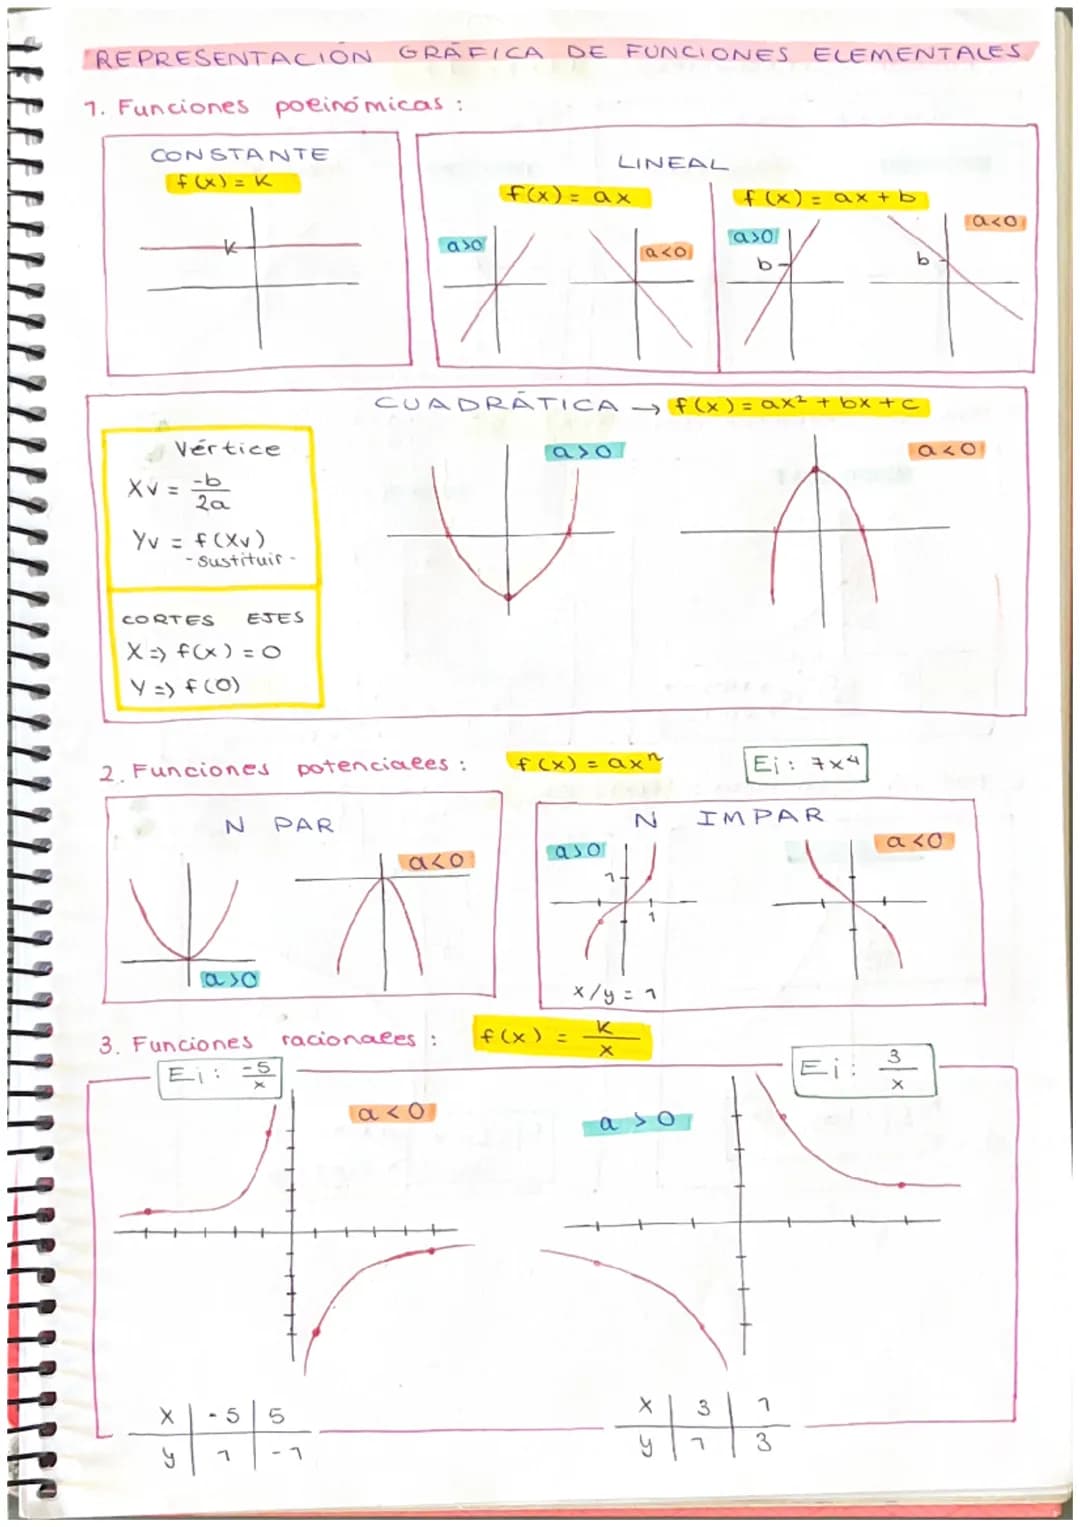 REPRESENTACIÓN GRÁFICA DE FUNCIONES ELEMENTALES
1. Funciones polinómicas:
CONSTANTE
f(x) = K
K
LINEAL
f(x) = ax
a>0
a<0
f(x) = ax + b
a>0
b
a<0
b
CUADRÁTICA → f(x) = ax² + bx + c
Vértice
Xv = -b/2a
Yv = f(Xv)
- sustituir -
CORTES EJES
X => f(x) = 0
Y => f(0)
a>0
a<0
2. Funciones potenciales: f(x) = axⁿ
Ej: 7x⁴
N PAR
a<0
a>0
N IMPAR
a>0
1
1
x/y = 1
a<0
3. Funciones racionales: f(x) = K/x
Ej: -5/x
a<0
a>0
Ej: 3/x
x | -5 | 5
y | 1 | -1
x | 3 | 1
y | 1 | 3